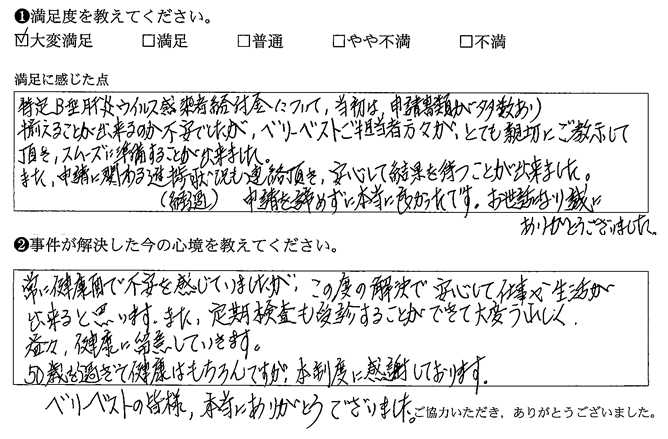 ❶満足度を教えてください。
☑大変満足 □満足 □普通 □やや不満 □不満
満足に感じた点
特定B型肝炎ウイルス感染者給付金について、当初は、申請書類が多数あり
揃えることが出来るのか不安でしたが、ベリーベストご担当者方々が、とても親切にご教示して
頂き、スムーズに準備することが出来ました。
また、申請に関わる進捗状況も連絡頂き、安心して結果を待つことが出来ました。
(経過) 申請を諦めずに本当に良かったです。お世話になり誠に
ありがとうございました。
❷事件が解決した今の心境を教えてください。
常に健康面で不安を感じていましたが、この度の解決で安心して仕事や生活が
出来ると思います。また、定期検査も受診することができて大変うれしく、
益々、健康に留意していきます。
50歳を過ぎて健康はもちろんですが、本制度に感謝しております。
ベリーベストの皆様、本当にありがとうございました。
ご協力いただき、ありがとうございました。